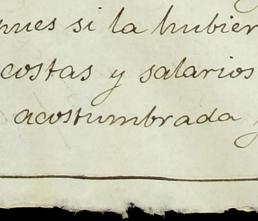 pues si la hubier
costas y salarios
acostumbrada y